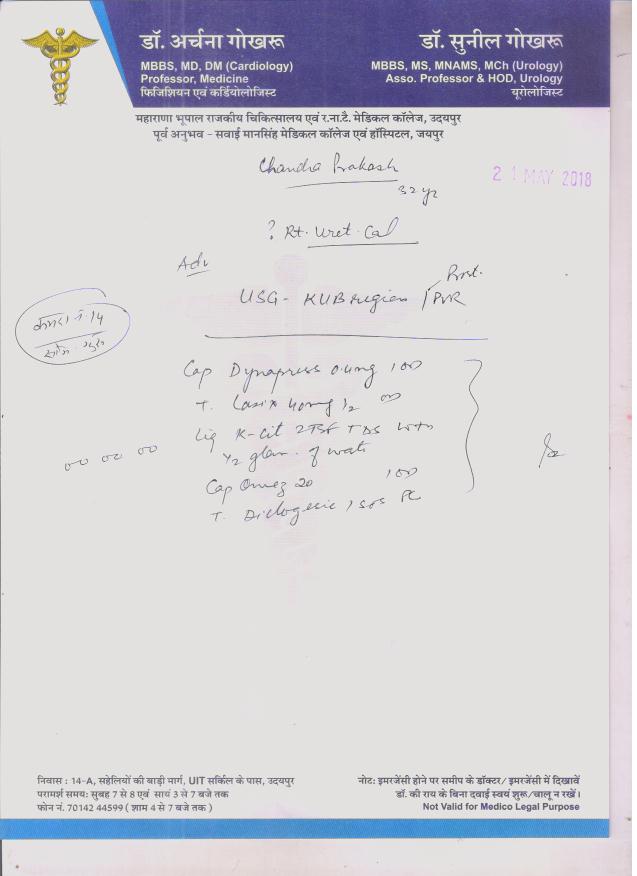 डॉ. अर्चना गोखरू
MBBS, MD, DM (Cardiology)
Professor, Medicine
फिजिशियन एवं कर्डियोलोजिस्ट
डॉ. सुनील गोखरू
MBBS, MS, MNAMS, MCh (Urology)
Asso. Professor & HOD, Urology
यूरोलोजिस्ट
महाराणा भूपाल राजकीय चिकित्सालय एवं र.ना.टै. मेडिकल कॉलेज, उदयपुर
पूर्व अनुभव - सवाई मानसिंह मेडिकल कॉलेज एवं हॉस्पिटल, जयपुर
Chandra Prakash
32 yr
21 MAY 2018
? Rt. Uret. Cal
Adv
USG - KUB region / PVR
Prost.
Cap Dynapress 0.4mg 1 OD
T. Lasix 40mg 1/2 OD
Liq K-Cit 2TSF TDS with
1/2 glass of water
Cap Omez 20 1 OD
T. Diclogesic 1 SOS PC
निवास : 14-A, सहेलियों की बाड़ी मार्ग, UIT सर्किल के पास, उदयपुर
परामर्श समय: सुबह 7 से 8 एवं सायं 3 से 7 बजे तक
फोन नं. 70142 44599 ( शाम 4 से 7 बजे तक )
नोट: इमरजेंसी होने पर समीप के डॉक्टर/ इमरजेंसी में दिखावें
डॉ. की राय के बिना दवाई स्वयं शुरू/चालू न रखें।
Not Valid for Medico Legal Purpose